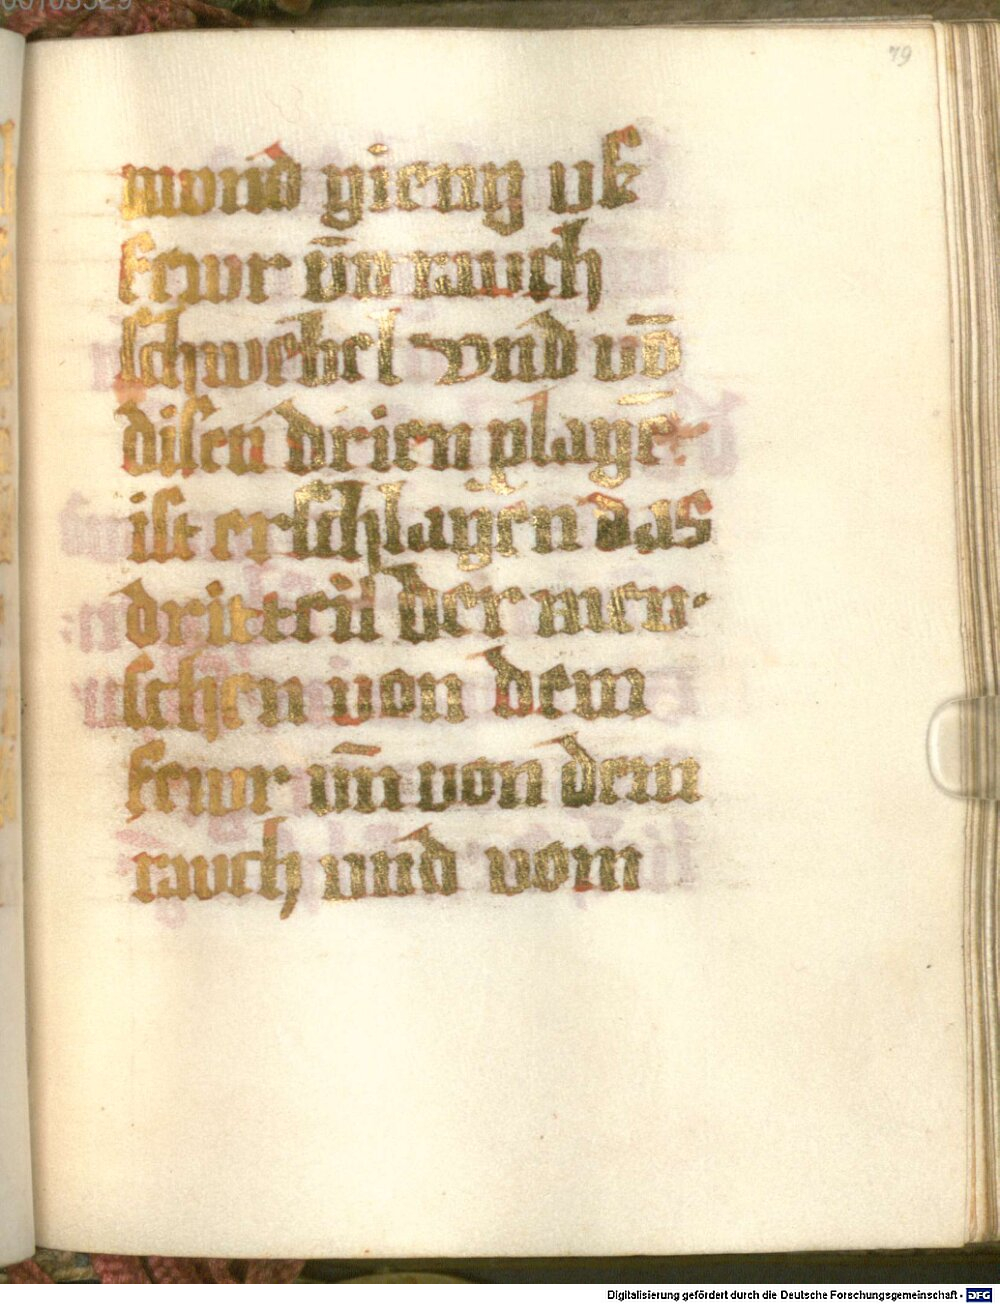 79
mond gieng uß
fewr vn̄ rauch
schwebel vnd vō
disen drien plagē
ist erschlagen das
dritteil der men·
schen von dem
fewr vn̄ von dem
rauch vnd vom
Digitalisierung gefördert durch die Deutsche Forschungsgemeinschaft - DFG